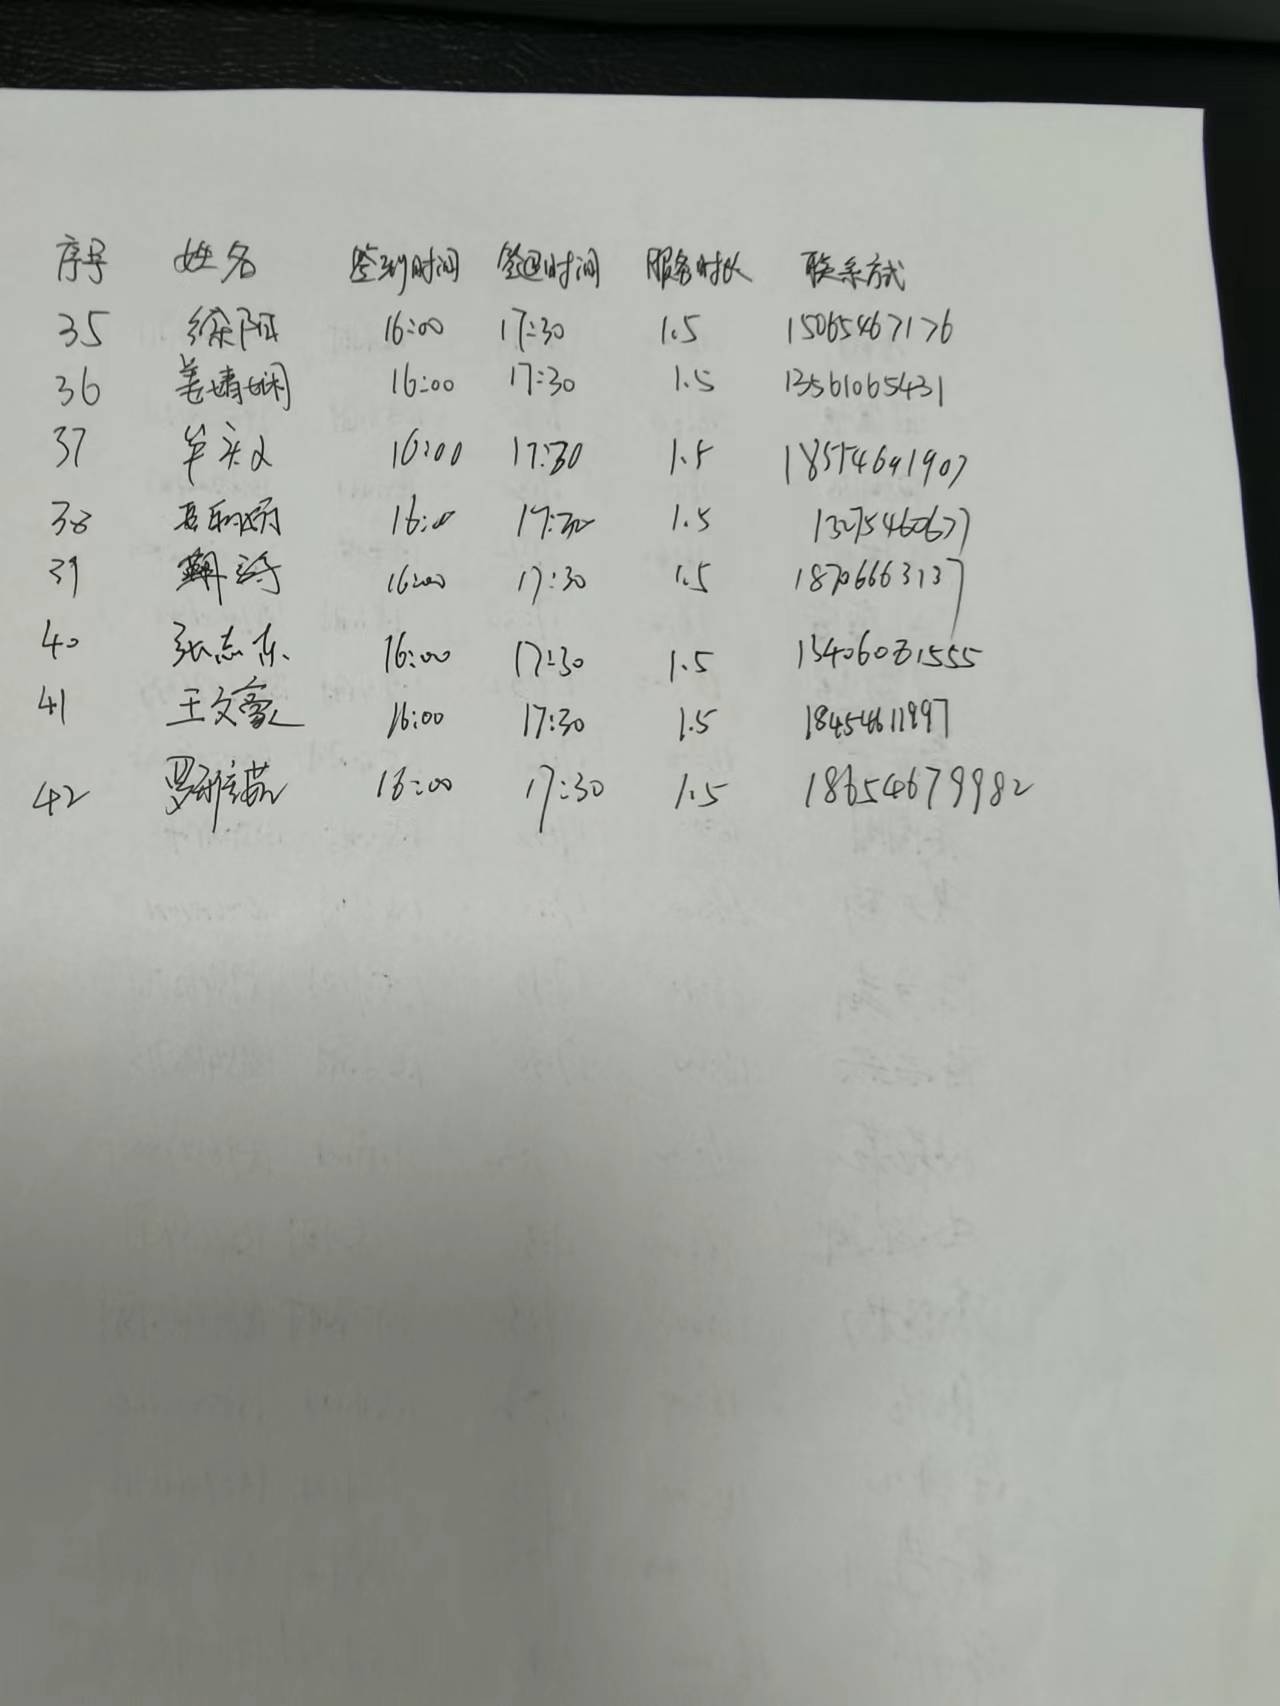 序号 姓名 签到时间 签退时间 服务时长 联系方式
35 徐阳 16:00 17:30 1.5 15065467176
36 姜婧娴 16:00 17:30 1.5 13561065431
37 16:00 17:30 1.5 18554691907
38 16:00 17:30 1.5 13275460677
39 16:00 17:30 1.5 18706663137
40 张志东 16:00 17:30 1.5 13406081555
41 王文豪 16:00 17:30 1.5 18454611997
42 16:00 17:30 1.5 18654679982